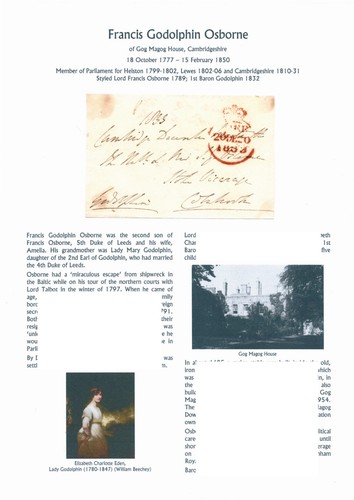 Francis Godolphin Osborne
of Gog Magog House, Cambridgeshire
18 October 1777 – 15 February 1850
Member of Parliament for Helston 1799-1802, Lewes 1802-06 and Cambridgeshire 1810-31
Styled Lord Francis Osborne 1789; 1st Baron Godolphin 1832
1833
Cambridge
Godolphin
Francis Godolphin Osborne was the second son of
Francis Osborne, 5th Duke of Leeds and his wife,
Amelia. His grandmother was Lady Mary Godolphin,
daughter of the 2nd Earl of Godolphin, who had married
the 4th Duke of Leeds.
Osborne had a 'miraculous escape' from shipwreck in
the Baltic while on his tour of the northern courts with
Lord Talbot in the winter of 1797. When he came of
age, mily
boro reign
secre 791.
Both their
resig was
'unlo e he
wou e in
Parli
By D was
settl
Elizabeth Charlotte Eden,
Lady Godolphin (1780-1847) (William Beechey)
Lord beth
Char 1st
Baro five
child
Gog Magog House
In a old,
iron which
was n, in
the also
build Gog
Mag 954.
The Magog
Dow ation
own
Osb litical
care until
shor e on
on nham
Roy
Baro